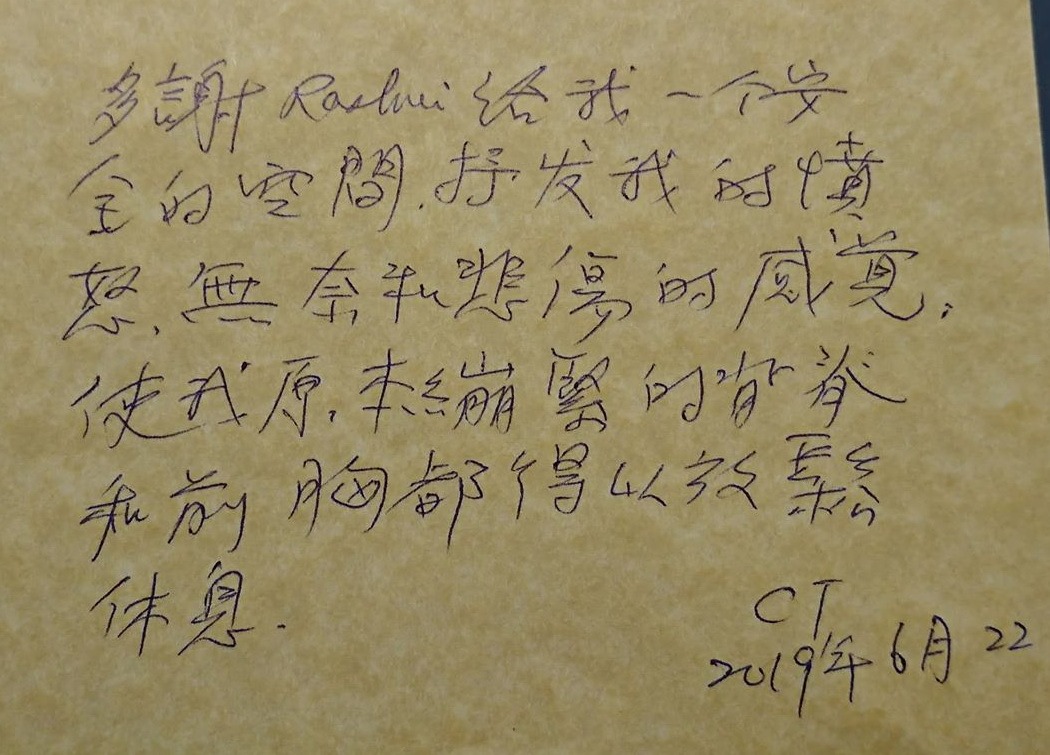 多謝 Rashmi 给我一个安
全的空間.抒发我的憤
怒、無奈和悲傷的感覚,
使我原本繃緊的背脊
和前胸都得以放鬆
休息.
CT
2019年6月22